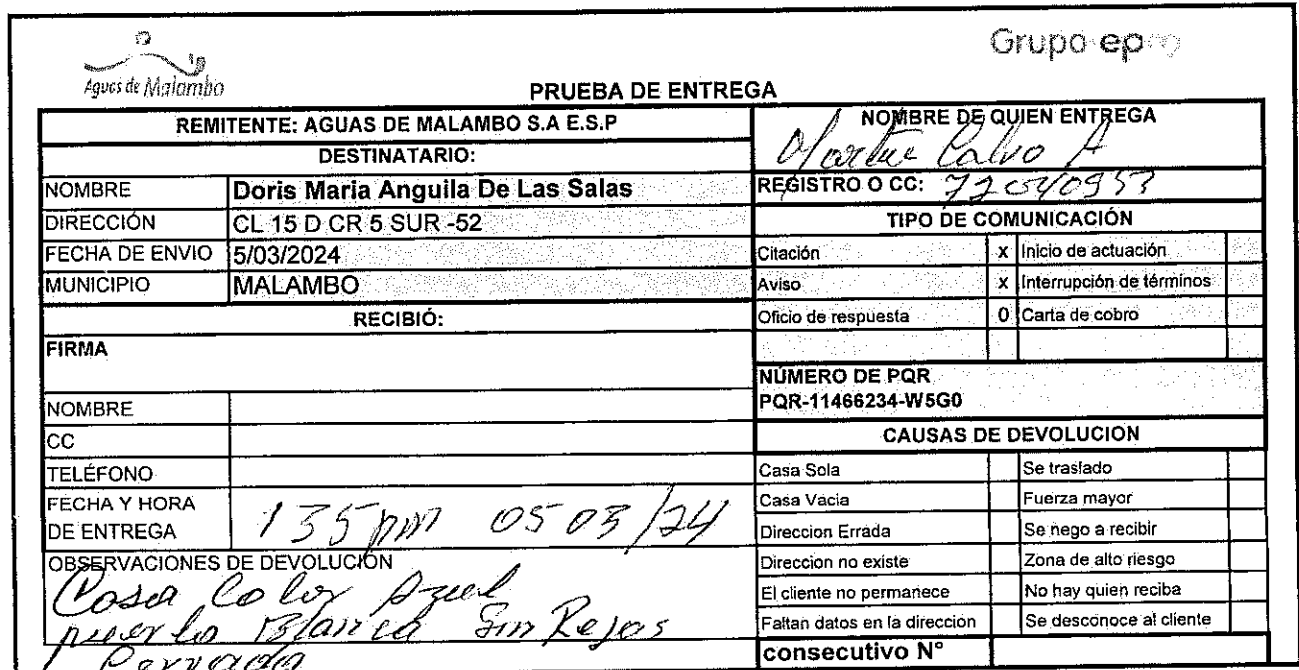 Aguas de Malambo
Grupo epm
PRUEBA DE ENTREGA
REMITENTE: AGUAS DE MALAMBO S.A E.S.P
DESTINATARIO:
NOMBRE Doris Maria Anguila De Las Salas
DIRECCIÓN CL 15 D CR 5 SUR -52
FECHA DE ENVIO 5/03/2024
MUNICIPIO MALAMBO
RECIBIÓ:
FIRMA
NOMBRE
CC
TELÉFONO
FECHA Y HORA
DE ENTREGA 135 pm 05 03/24
OBSERVACIONES DE DEVOLUCIÓN
Casa Color Azul
puerta Blanca Sin Rejas
Cerrada
NOMBRE DE QUIEN ENTREGA
Calvo A
REGISTRO O CC: 72040953
TIPO DE COMUNICACIÓN
Citación x Inicio de actuación
Aviso x Interrupción de términos
Oficio de respuesta 0 Carta de cobro
NÚMERO DE PQR
PQR-11466234-W5G0
CAUSAS DE DEVOLUCION
Casa Sola Se traslado
Casa Vacia Fuerza mayor
Direccion Errada Se nego a recibir
Direccion no existe Zona de alto riesgo
El cliente no permanece No hay quien reciba
Faltan datos en la direccion Se desconoce al cliente
consecutivo N°